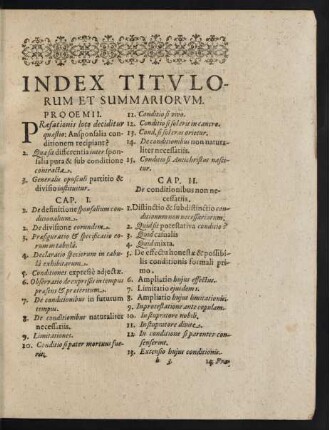 INDEX TITVLO-
RUM ET SUMMARIORVM.
PROOEMII.
PRæfationis loco deciditur
quæstio; An sponsalia con-
ditionem recipiant?
2. Quæ sit differentia inter spon-
salia pura & sub conditione
contracta.
3. Generalis opusculi partitio &
divisio instituitur.
CAP. I.
1. De definitione sponsalium con-
ditionatorum.
2. De divisione eorundem.
3. Præfiguratio & specificatio eo-
rum in tabella.
4. Declaratio specierum in ta-
bula exhibitarum.
5. Conditiones expressè adjectæ.
6. Observatio de expressis in tempus
præsens & præteritum.
7. De conditionibus in futurum
tempus.
8. De conditionibus naturaliter
necessariis.
9. Limitationes.
10. Conditio si pater mortuus fue-
rit.
11. Conditio si vivo.
12. Conditio si sol orietur cras.
13. Cond. si sol cras orietur.
14. De conditionibus non natura-
liter necessariis.
15. Conditio si Antichristus nasce-
tur.
CAP. II.
De conditionibus non ne-
cessariis.
1. Distinctio & subdistinctio con-
ditionum non necessariarum;
2. Quid sit potestativa conditio?
3. Quid casualis
4. Quid mixta.
5. De effectu honestæ & possibi-
lis conditionis formali pri-
mo.
6. Ampliatio hujus effectus.
7. Limitatio ejusdem.
8. Ampliatio hujus limitationis.
9. In protestatione ante copulam.
10. In stupratore nobili.
11. In stupratore divite.
12. In conditione si parentes con-
senserint.
13. Extensio hujus conditionis.
b 3 14. Pro-